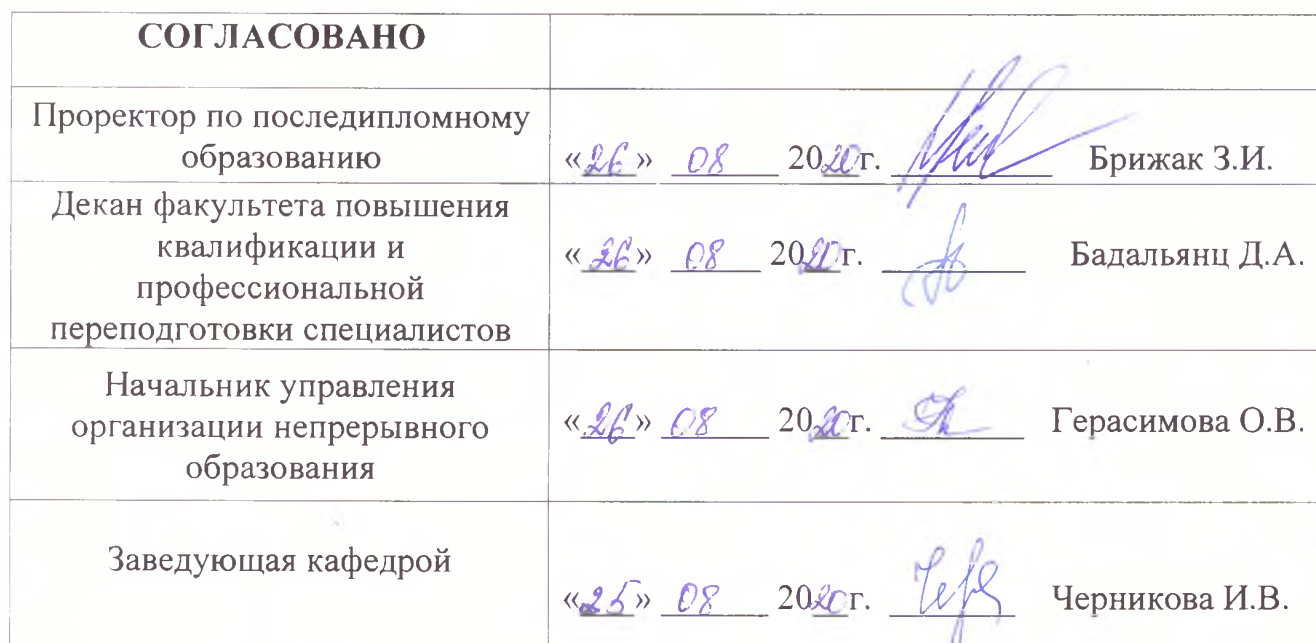 СОГЛАСОВАНО
Проректор по последипломному
образованию
«26» 08 2020г. Брижак З.И.
Декан факультета повышения
квалификации и
профессиональной
переподготовки специалистов
«26» 08 2020г. Бадальянц Д.А.
Начальник управления
организации непрерывного
образования
«26» 08 2020г. Герасимова О.В.
Заведующая кафедрой
«25» 08 2020г. Черникова И.В.